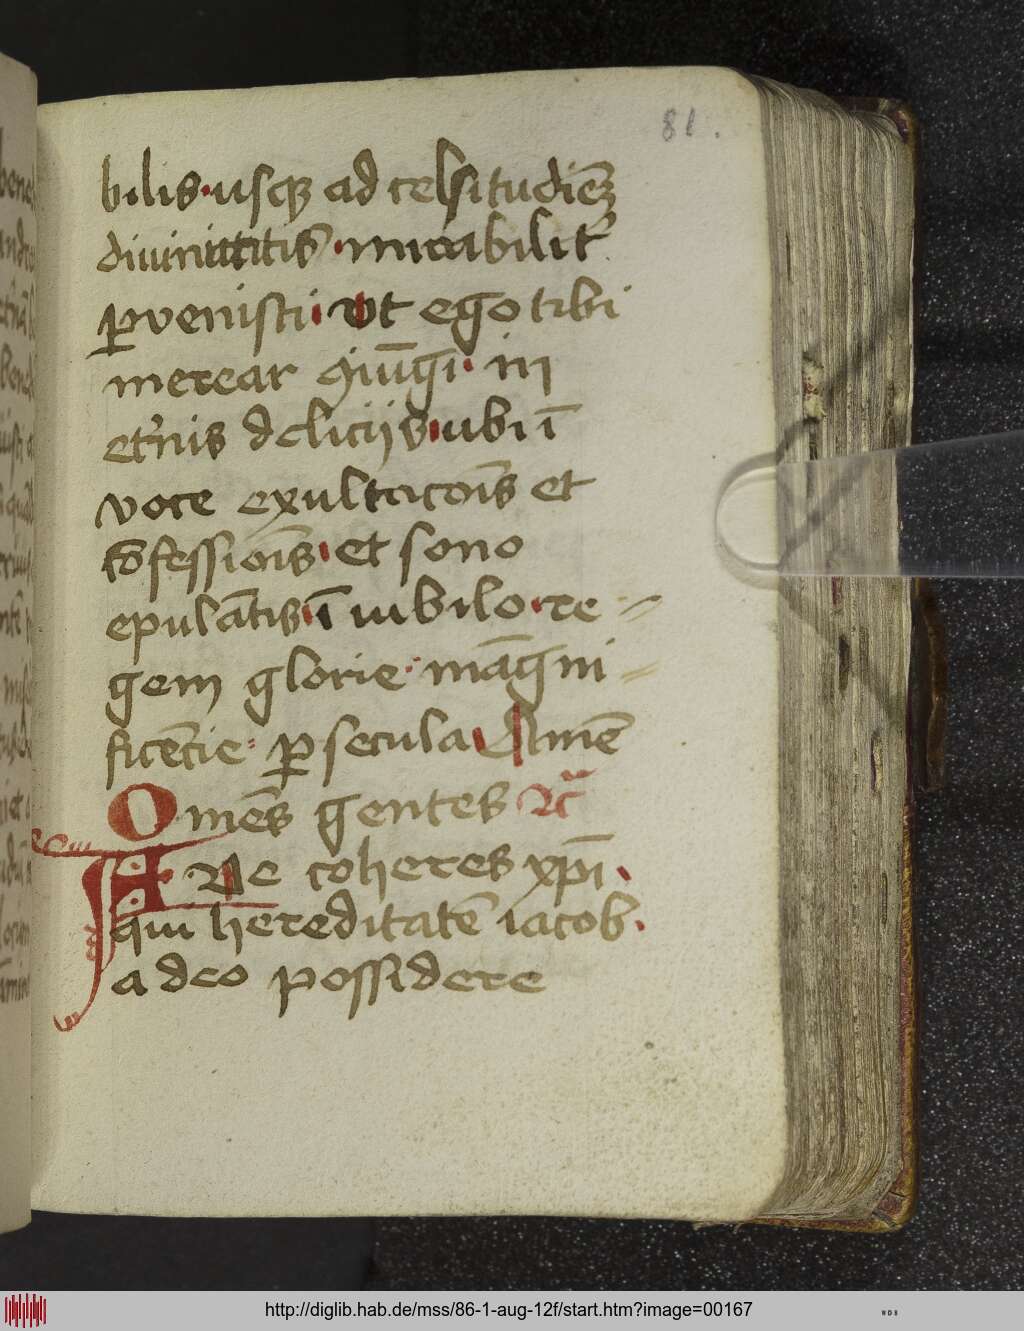 81.
bilis usqꝫ ad celsitudiēꝫ
diuinitatis mirabilit᷑
ꝑvenisti vt ego tibi
merear ꝯiūgi in
et᷑nis delicijs ubi ī
voce exultacōis et
cōfessiōis et sono
epulātis ī iubilo re
gem glorie māgni
ficēcie ꝑ secula Amē
Omēs gentes Rc̄
AVe coheres xp̄i
qui hereditatē iacob
a deo possidere
http://diglib.hab.de/mss/86-1-aug-12f/start.htm?image=00167